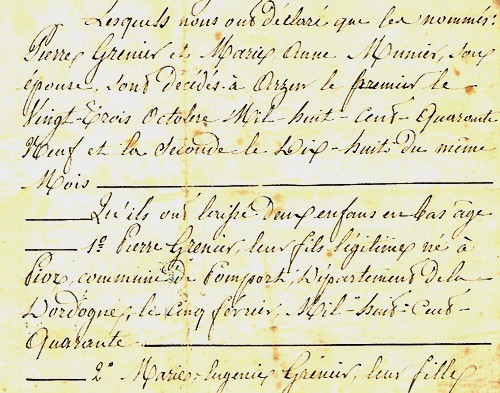 Lesquels nous ont déclaré que les nommés:
Pierre Grenier et Marie Anne Munier, son
épouse, sont décédés à Arzew le premier le
Vingt-trois Octobre Mil-huit-Cent-Quarante
Neuf et la seconde le Dix-huit du même
Mois
Qu'ils ont laissé deux enfans en bas âge
1º Pierre Grenier, leur fils légitime né à
commune de Pomport, Département de la
Dordogne, le cinq février, Mil-huit-Cent-
Quarante
2º Marie, Eugénie Grenier, leur fille